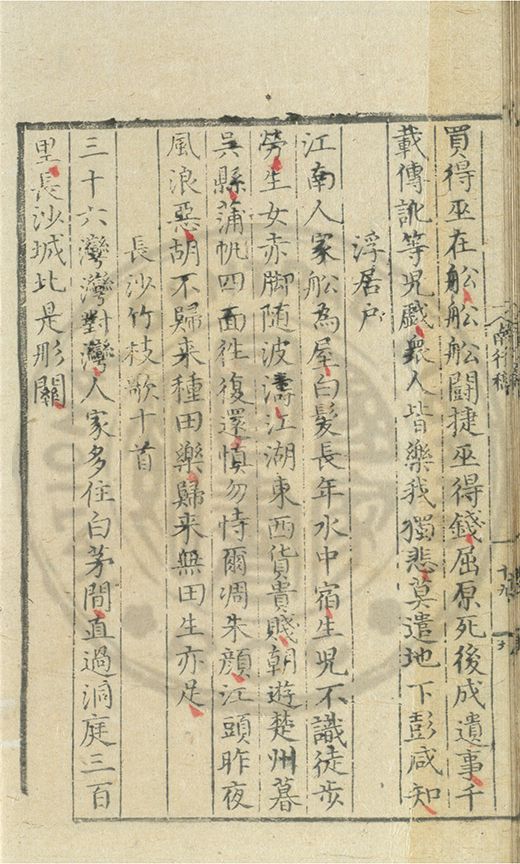 買得巫在舩舩舩闘捷巫得錢屈原死後成遺事千
載傳訛等兒戯衆人皆樂我獨悲莫遣地下彭咸知
浮居戸
江南人家舩為屋白髮長年水中宿生兒不識徒步
勞生女赤脚随波濤江湖東西貨貴賤朝遊楚州暮
吳縣蒲帆四面徃復還慎勿恃爾凋朱顔江頭昨夜
風浪惡胡不歸来種田樂歸来無田生亦足
長沙竹枝歌十首
三十六灣灣對灣人家多住白茅間直過洞庭三百
里長沙城北是彤關
南行稿
十九